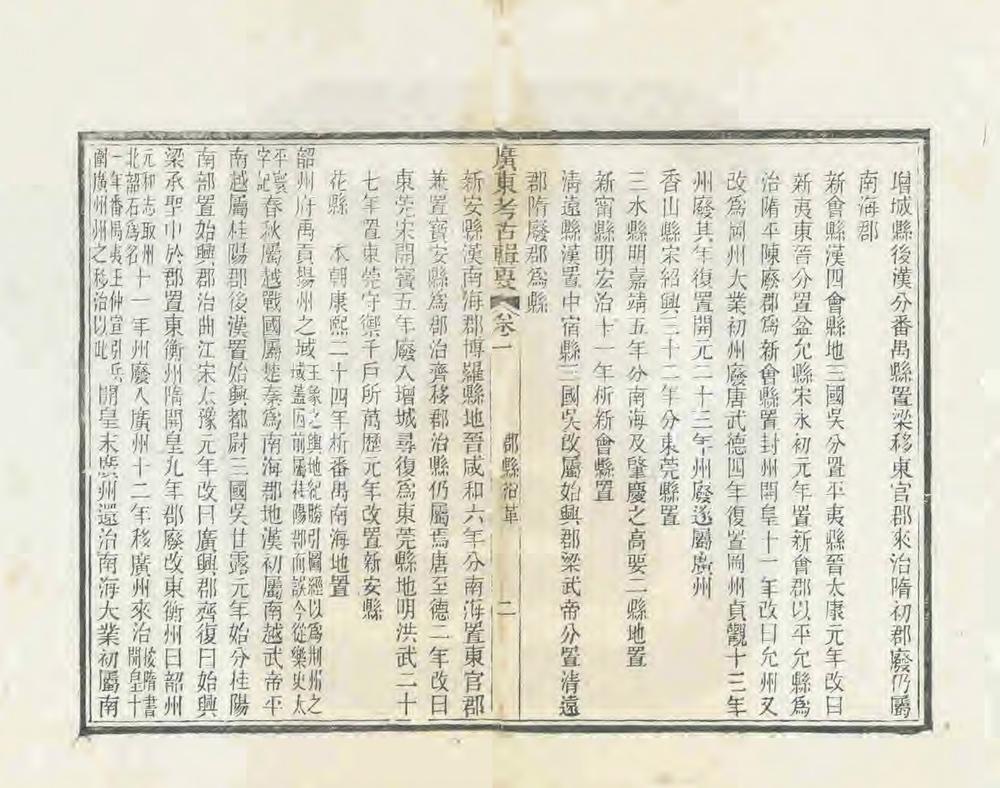 增城縣後漢分番禺縣置梁移東官郡來治隋初郡廢仍屬
南海郡
新會縣漢四會縣地三國吳分置平夷縣晉太康元年改曰
新夷東晉分置盆允縣宋永初元年置新會郡以平允縣爲
治隋平陳廢郡爲新會縣置封州開皇十一年改曰允州又
改爲岡州大業初州廢唐武德四年復置岡州貞觀十三年
州廢其年復置開元二十三年州廢遂屬廣州
香山縣宋紹興三十二年分東莞縣置
三水縣明嘉靖五年分南海及肇慶之高要二縣地置
新甯縣明宏治十一年析新會縣置
淸遠縣漢置中宿縣三國吳改屬始興郡梁武帝分置清遠
郡隋廢郡爲縣
廣東考古輯要 卷一 郡縣沿革 二
新安縣漢南海郡博羅縣地晉咸和六年分南海置東官郡
兼置寶安縣爲郡治齊移郡治縣仍屬焉唐至德二年改曰
東莞宋開寶五年廢入增城尋復爲東莞縣地明洪武二十
七年置東莞守禦千戶所萬歷元年改置新安縣
花縣 本朝康熙二十四年析番禺南海地置
韶州府禹貢揚州之域王象之輿地紀勝引圖經以爲荆州之域蓋因前屬桂陽郡而誤今從樂史太
平寰宇記春秋屬越戰國屬楚秦爲南海郡地漢初屬南越武帝平
南越屬桂陽郡後漢置始興都尉三國吳甘露元年始分桂陽
南部置始興郡治曲江宋太豫元年改曰廣興郡齊復曰始興
梁承聖中於郡置東衡州隋開皇九年郡廢改東衡州曰韶州
元和志取州北韶石爲名十一年州廢入廣州十二年移廣州來治按隋書開皇十
一年番禺夷王仲宣引兵圍廣州州之移治以此開皇末廣州還治南海大業初屬南